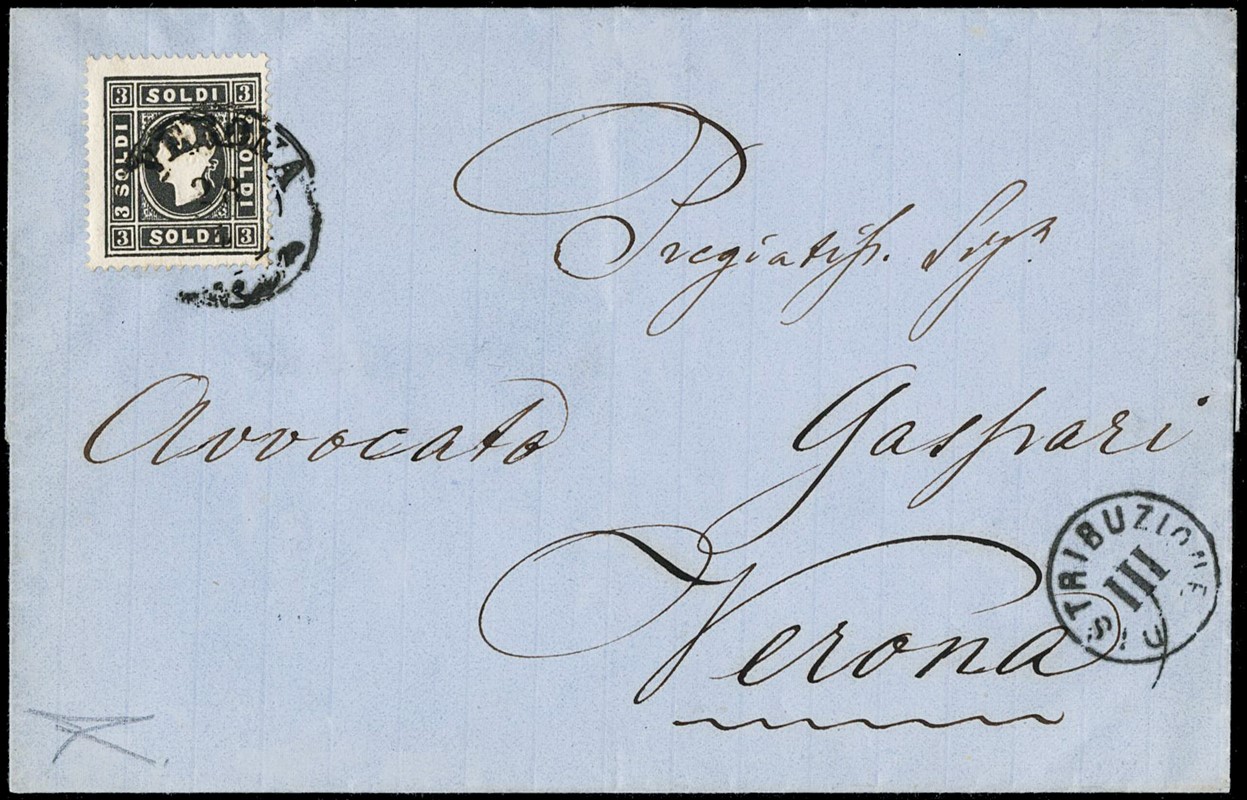 3 SOLDI 3
SOLDI
3 SOLDI
3 SOLDI 3
VERONA
28
Pregiatiss. Sigr
Avvocato Gaspari
Verona
DISTRIBUZIONE
III